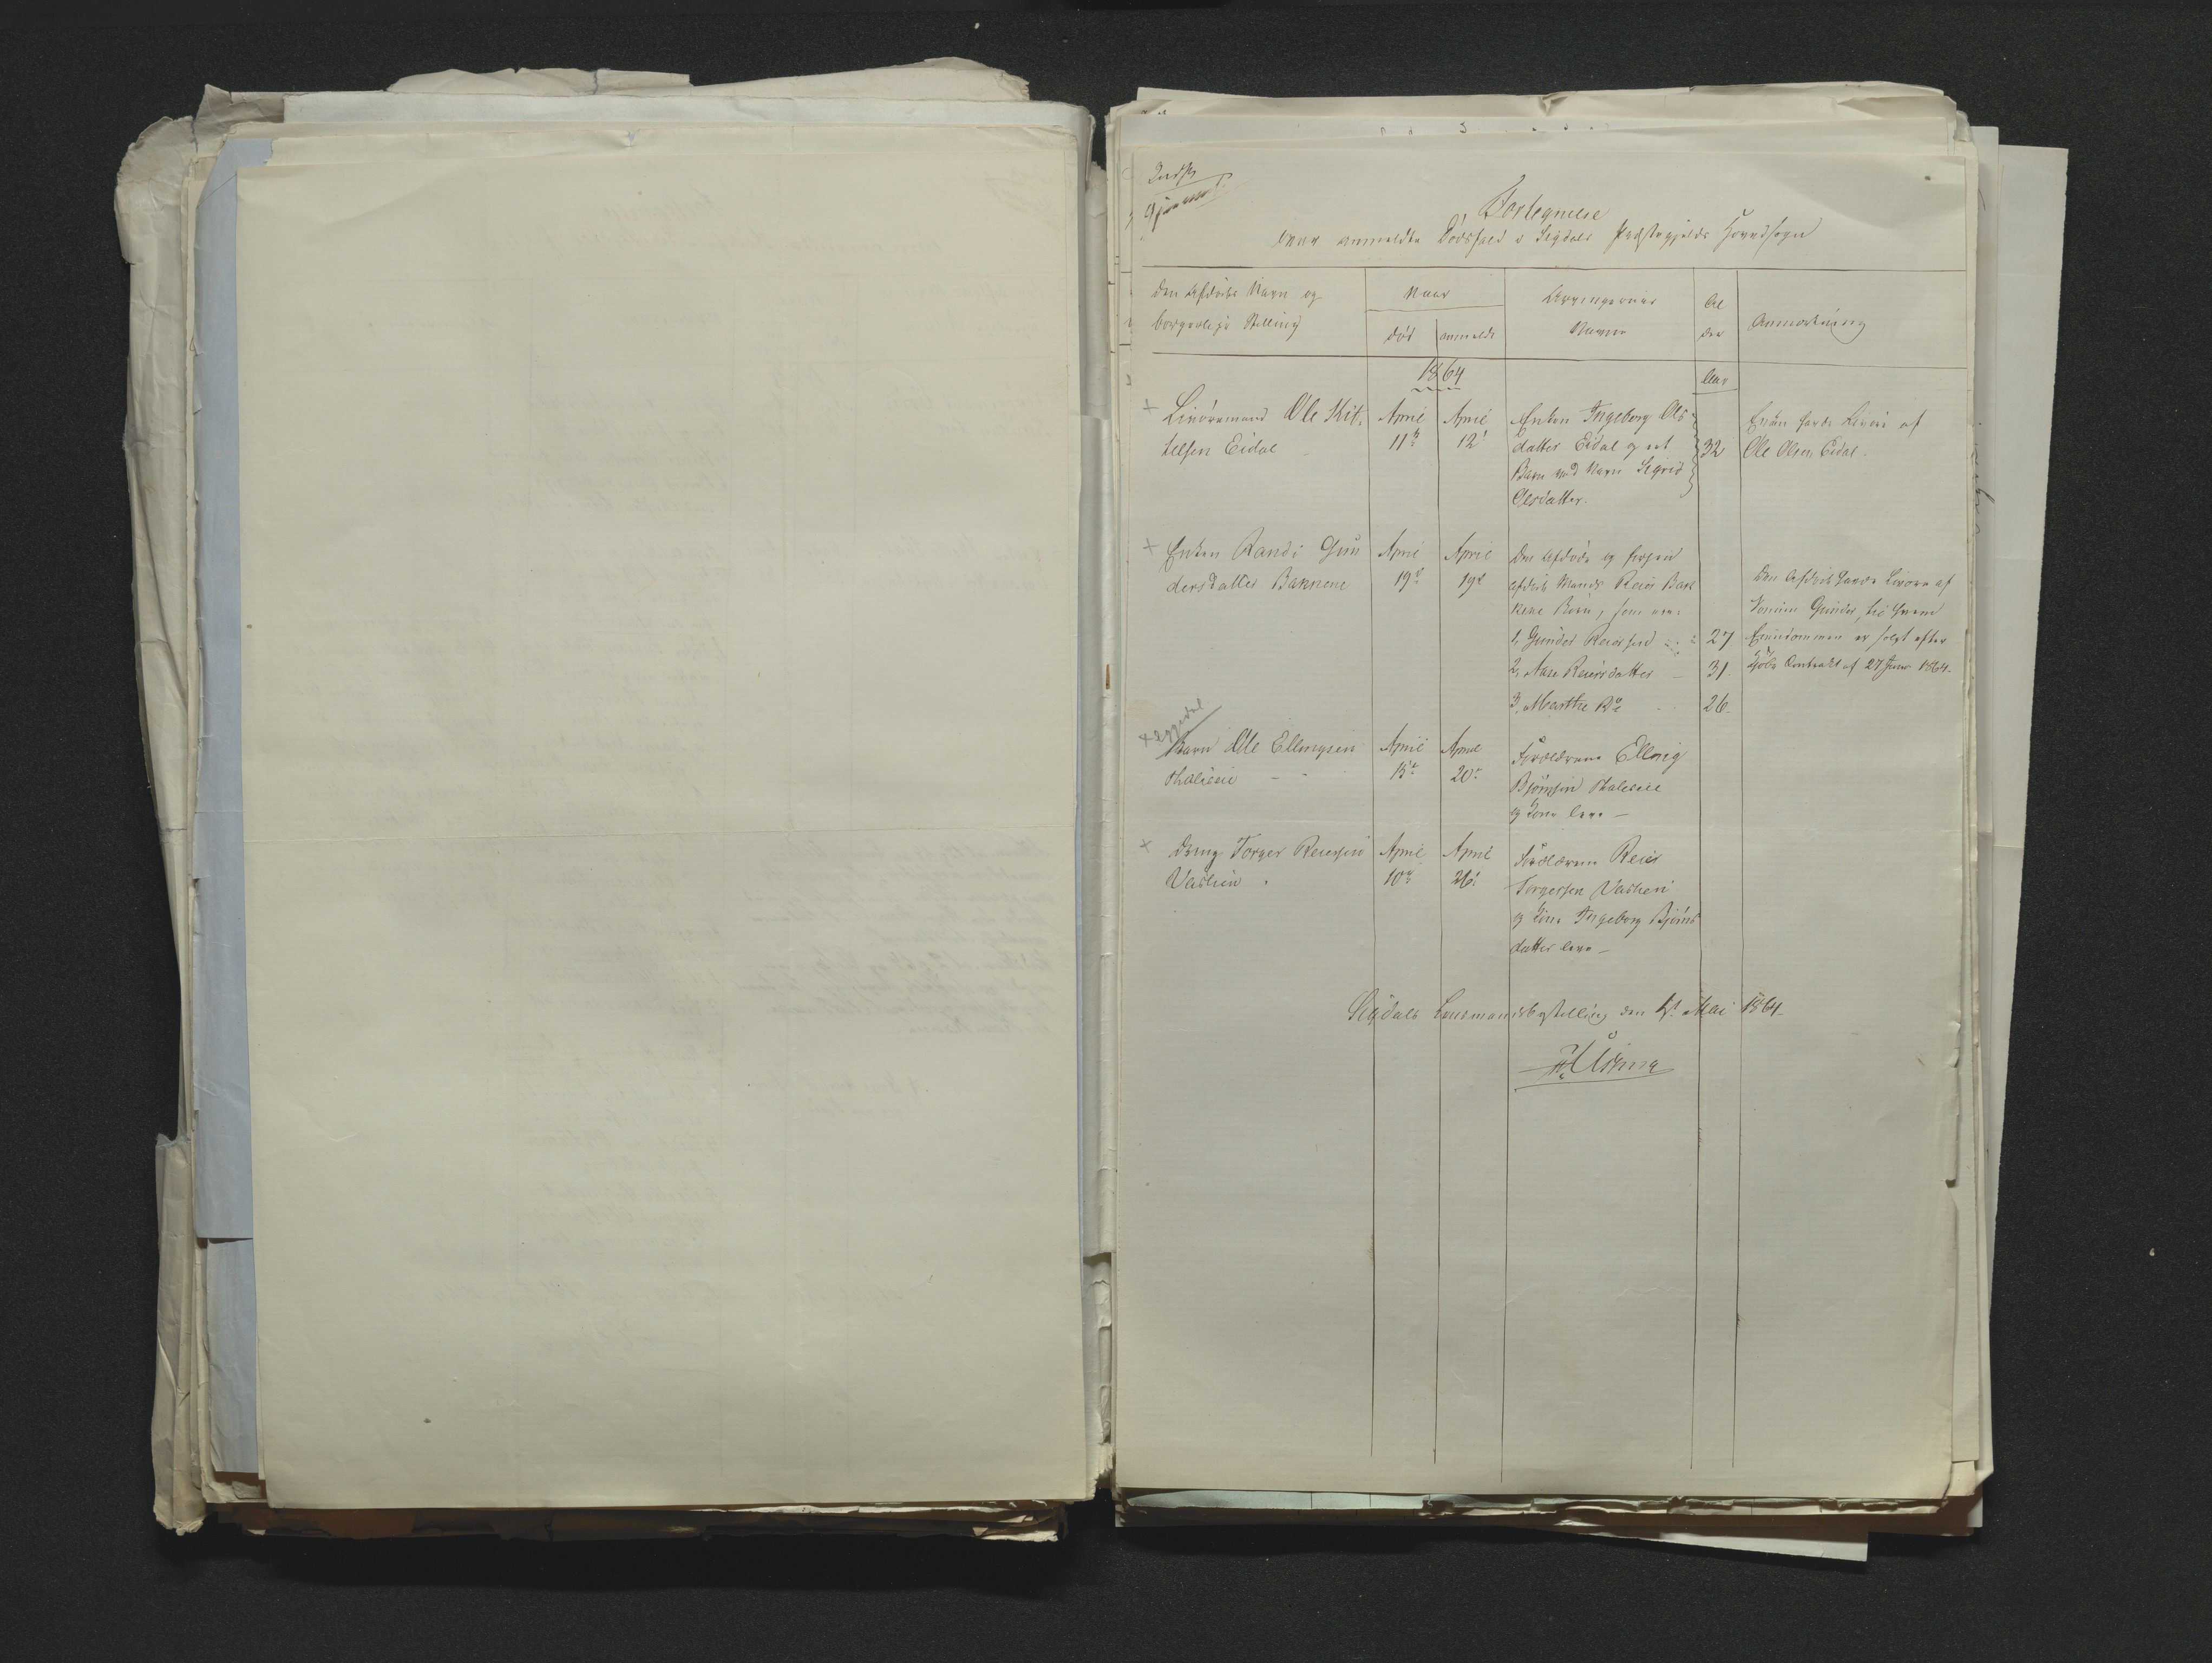 Fortegnelse
over anmeldte Dødsfald i Sigdals Præstegjelds Hovedsogn
Den Afdødes Navn og
borgerlige Stilling
Naar
død
anmeldt
Arvingernes
Navne
Al
der
Anmærkning
1864
Aar
+ Livøremand Ole Kit-
telsen Eidal
April
11te
April
12'
Enken Ingeborg Ols
datter Eidal og et
Barn ved Navn Sigrid
Olsdatter.
32
Enken havde Livøre af
Ole Olsen Eidal.
+ Enken Randi Gun
dersdatter Bakkene
April
19d
April
19d
Den Afdøde og forhen
afdøde Mands Reier Bak
kene Børn, som ere:
1, Gunder Reiersen
27
2, Aase Reiersdatter
31.
3, Marthe Do
26.
Den Afdøde havde Livøre af
Sønnen Gunder, til hvem
Eiendommen er solgt efter
Kjøbe Contrakt af 27 Janr 1864.
+ Eggedal
Barn Ole Ellingsen
April
15de
April
20de
Forældrene Elling
Bjørnsen
og Kone leve —
+ Dreng Torger Reiersen
Vashein
April
10de
April
26'
Forældrene Reier
Torgersen Vashein
og Kone Ingeborg Bjørns
datter leve —
Sigdals Lensmandsbestilling den 1st Mai 1864.